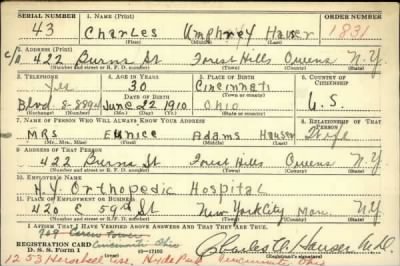 SERIAL NUMBER 1. NAME (Print) ORDER NUMBER
43 Charles Umphrey Hauser 1831
(First) (Middle) (Last)
2. ADDRESS (Print)
c/o 422 Burns St Forest Hills Queens N.Y.
(Number and street or R. F. D. number) (Town) (County) (State)
3. TELEPHONE 4. AGE IN YEARS 5. PLACE OF BIRTH 6. COUNTRY OF CITIZENSHIP
Yes 30 Cincinnati
(Town or county)
Blvd 8-8894 June 22 1910 Ohio U.S.
(Exchange) (Number) (Mo.) (Day) (Yr.) (State or country)
7. NAME OF PERSON WHO WILL ALWAYS KNOW YOUR ADDRESS 8. RELATIONSHIP OF THAT PERSON
Mrs Eunice Adams Hauser Wife
(Mr., Mrs., Miss) (First) (Middle) (Last)
9. ADDRESS OF THAT PERSON
422 Burns St Forest Hills Queens N.Y.
(Number and street or R. F. D. number) (Town) (County) (State)
10. EMPLOYER'S NAME
N.Y. Orthopedic Hospital
11. PLACE OF EMPLOYMENT OR BUSINESS
420 E 59th St New York City Man. N.Y.
(Number and street or R. F. D. number) (Town) (County) (State)
I AFFIRM THAT I HAVE VERIFIED ABOVE ANSWERS AND THAT THEY ARE TRUE.
REGISTRATION CARD Cincinnati Ohio
D. S. S. Form 1 Charles U. Hauser M.D.
(Registrant's signature)
1253 Herschel Ave. Hyde Park Cincinnati Ohio